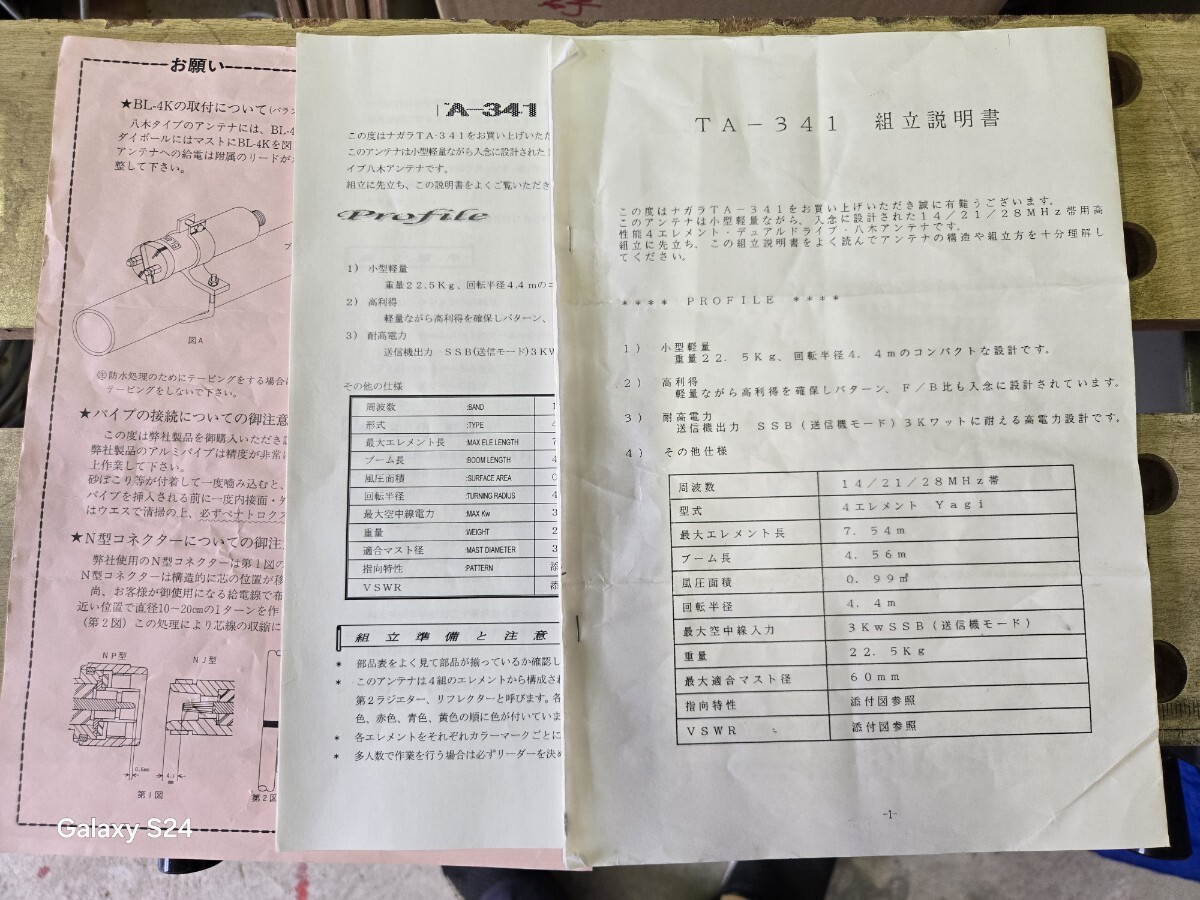 お願い
★BL-4Kの取付について
八木タイプのアンテナには、BL-4
ダイポールにはマストにBL-4Kを図
アンテナへの給電は附属のリードが
整して下さい。
図A
㊟防水処理のためにテーピングをする場合
テーピングをしないで下さい。
★パイプの接続についての御注意
この度は弊社製品を御購入いただき
弊社製品のアルミパイプは精度が非常
上作業して下さい。
砂ぼこり等が付着して一度噛み込むと、
パイプを挿入される前に一度内接面・外
はウエスで清掃の上、必ずペナトロクス
★N型コネクターについての御注
弊社使用のN型コネクターは第1図の
N型コネクターは構造的に芯の位置が移
尚、お客様が御使用になる給電線で布
近い位置で直径10~20cmの1ターンを作
(第2図)この処理により芯線の収縮に
NP型
NJ型
第1図
第2図
TA-341
この度はナガラTA-341をお買い上げいた
このアンテナは小型軽量ながら入念に設計された
イブ八木アンテナです。
組立に先立ち、この説明書をよくご覧いただき
Profile
1) 小型軽量
重量22.5Kg、回転半径4.4mの
2) 高利得
軽量ながら高利得を確保しパターン、
3) 耐高電力
送信機出力 SSB(送信モード)3KW
その他の仕様
周波数 :BAND 1
形式 :TYPE 4
最大エレメント長 :MAX ELE LENGTH 7
ブーム長 :BOOM LENGTH 4
風圧面積 :SURFACE AREA 0
回転半径 :TURNING RADIUS 4
最大空中線電力 :MAX Kw 3
重量 :WEIGHT 2
適合マスト径 :MAST DIAMETER 3
指向特性 :PATTERN 添
VSWR 添
組立準備と注意
* 部品表をよく見て部品が揃っているか確認し
* このアンテナは4組のエレメントから構成され
第2ラジエター、リフレクターと呼びます。各
色、赤色、青色、黄色の順に色が付いていま
* 各エレメントをそれぞれカラーマークごとに
* 多人数で作業を行う場合は必ずリーダーを決め
TA-341 組立説明書
この度はナガラTA-341をお買い上げいただき誠に有難うございます。
このアンテナは小型軽量ながら、入念に設計された14/21/28MHz帯用高
性能4エレメント・デュアルドライブ・八木アンテナです。
組立に先立ち、この組立説明書をよく読んでアンテナの構造や組立方を十分理解し
てください。
**** PROFILE ****
1) 小型軽量
重量22.5Kg、回転半径4.4mのコンパクトな設計です。
2) 高利得
軽量ながら高利得を確保しパターン、F/B比も入念に設計されています。
3) 耐高電力
送信機出力 SSB(送信機モード)3Kワットに耐える高電力設計です。
4) その他仕様
周波数 14/21/28MHz帯
型式 4エレメント Yagi
最大エレメント長 7.54m
ブーム長 4.56m
風圧面積 0.99㎡
回転半径 4.4m
最大空中線入力 3KwSSB(送信機モード)
重量 22.5Kg
最大適合マスト径 60mm
指向特性 添付図参照
VSWR 添付図参照
-1-
Galaxy S24